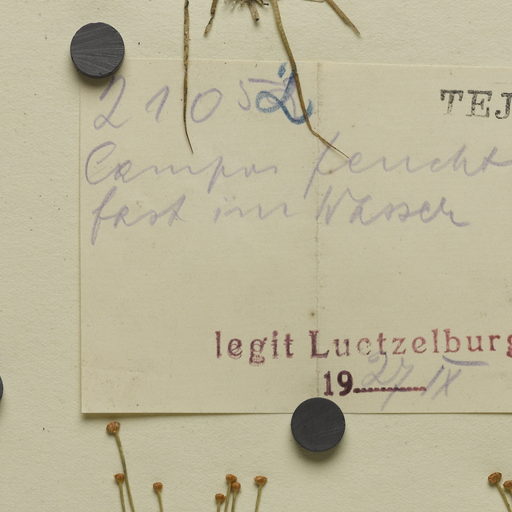 21052
TEJ
Campos feucht
fast im Wasser
legit Luetzelburg
1927 IX